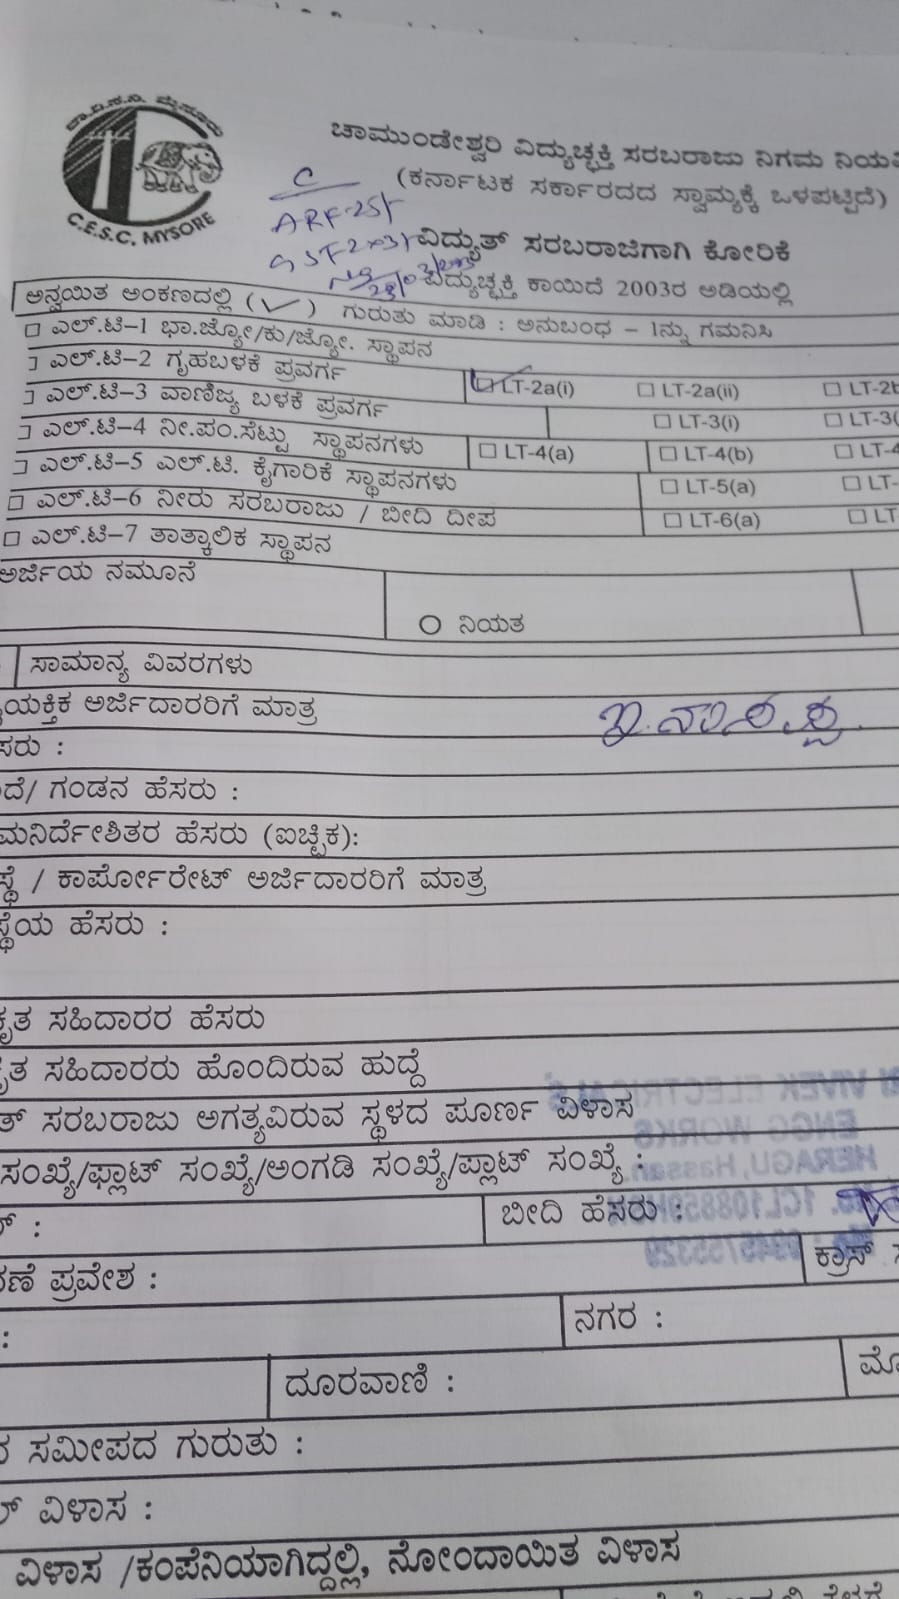 ಚಾ.ವಿ.ಸ.ನಿ. ಮೈಸೂರು
C.E.S.C. MYSORE
ಚಾಮುಂಡೇಶ್ವರಿ ವಿದ್ಯುಚ್ಛಕ್ತಿ ಸರಬರಾಜು ನಿಗಮ ನಿಯಮ
(ಕರ್ನಾಟಕ ಸರ್ಕಾರದದ ಸ್ವಾಮ್ಯಕ್ಕೆ ಒಳಪಟ್ಟಿದೆ)
C
ARF-25/-
ವಿದ್ಯುತ್ ಸರಬರಾಜಿಗಾಗಿ ಕೋರಿಕೆ
ವಿದ್ಯುಚ್ಛಕ್ತಿ ಕಾಯಿದೆ 2003ರ ಅಡಿಯಲ್ಲಿ
ಅನ್ವಯಿತ ಅಂಕಣದಲ್ಲಿ (✓) ಗುರುತು ಮಾಡಿ : ಅನುಬಂಧ – 1ನ್ನು ಗಮನಿಸಿ
ಎಲ್.ಟಿ–1 ಭಾ.ಜ್ಯೋ/ಕು/ಜ್ಯೋ. ಸ್ಥಾಪನ
ಎಲ್.ಟಿ–2 ಗೃಹಬಳಕೆ ಪ್ರವರ್ಗ LT-2a(i) LT-2a(ii) LT-2b
ಎಲ್.ಟಿ–3 ವಾಣಿಜ್ಯ ಬಳಕೆ ಪ್ರವರ್ಗ LT-3(i) LT-3(
ಎಲ್.ಟಿ–4 ನೀ.ಪಂ.ಸೆಟ್ಟು ಸ್ಥಾಪನಗಳು LT-4(a) LT-4(b) LT-4
ಎಲ್.ಟಿ–5 ಎಲ್.ಟಿ. ಕೈಗಾರಿಕೆ ಸ್ಥಾಪನಗಳು LT-5(a) LT-
ಎಲ್.ಟಿ–6 ನೀರು ಸರಬರಾಜು / ಬೀದಿ ದೀಪ LT-6(a) LT
ಎಲ್.ಟಿ–7 ತಾತ್ಕಾಲಿಕ ಸ್ಥಾಪನ
ಅರ್ಜಿಯ ನಮೂನೆ
ನಿಯತ
ಸಾಮಾನ್ಯ ವಿವರಗಳು
ಯಕ್ತಿಕ ಅರ್ಜಿದಾರರಿಗೆ ಮಾತ್ರ
ಸರು :
ದೆ/ ಗಂಡನ ಹೆಸರು :
ಮನಿರ್ದೇಶಿತರ ಹೆಸರು (ಐಚ್ಛಿಕ):
ಸ್ಥೆ / ಕಾರ್ಪೋರೇಟ್ ಅರ್ಜಿದಾರರಿಗೆ ಮಾತ್ರ
ಸ್ಥೆಯ ಹೆಸರು :
ಕೃತ ಸಹಿದಾರರ ಹೆಸರು
ಕೃತ ಸಹಿದಾರರು ಹೊಂದಿರುವ ಹುದ್ದೆ
ತ್ ಸರಬರಾಜು ಅಗತ್ಯವಿರುವ ಸ್ಥಳದ ಪೂರ್ಣ ವಿಳಾಸ
ಸಂಖ್ಯೆ/ಫ್ಲಾಟ್ ಸಂಖ್ಯೆ/ಅಂಗಡಿ ಸಂಖ್ಯೆ/ಪ್ಲಾಟ್ ಸಂಖ್ಯೆ :
ಬೀದಿ ಹೆಸರು :
ಣೆ ಪ್ರವೇಶ : ಕ್ರಾಸ್
ನಗರ :
ದೂರವಾಣಿ : ಮೊ
ಸಮೀಪದ ಗುರುತು :
ಲ್ ವಿಳಾಸ :
ವಿಳಾಸ /ಕಂಪೆನಿಯಾಗಿದ್ದಲ್ಲಿ, ನೋಂದಾಯಿತ ವಿಳಾಸ